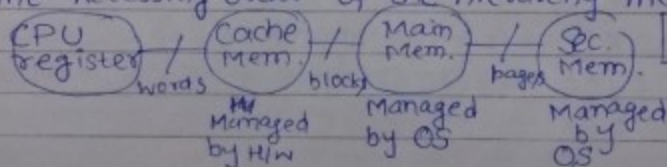 CPU register
words
Cache Mem.
blocks
Main Mem.
pages
Sec. Mem.
Managed by H/W
Managed by OS
Managed by OS